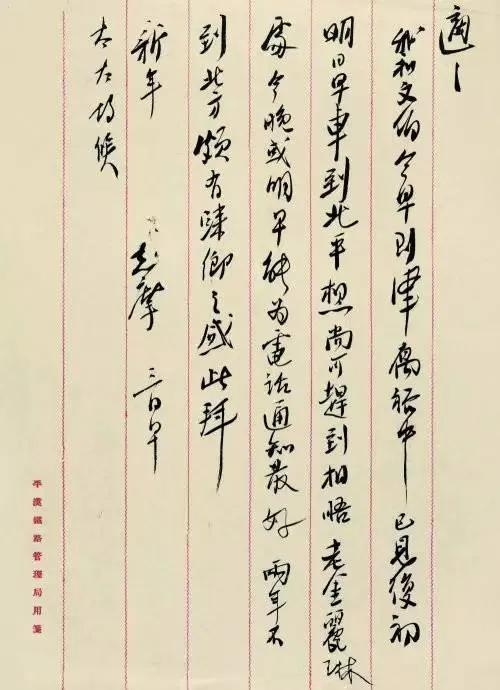 適之
我和文伯今早到津寓裕中已見復初
明日早車到北平想尚可趕到相晤老金麗琳
處今晚或明早能為電話通知最好兩年不
到北方頗有鄉之感此拜
新年
太太均候
志摩 三日早
平漢鐵路管理局用箋